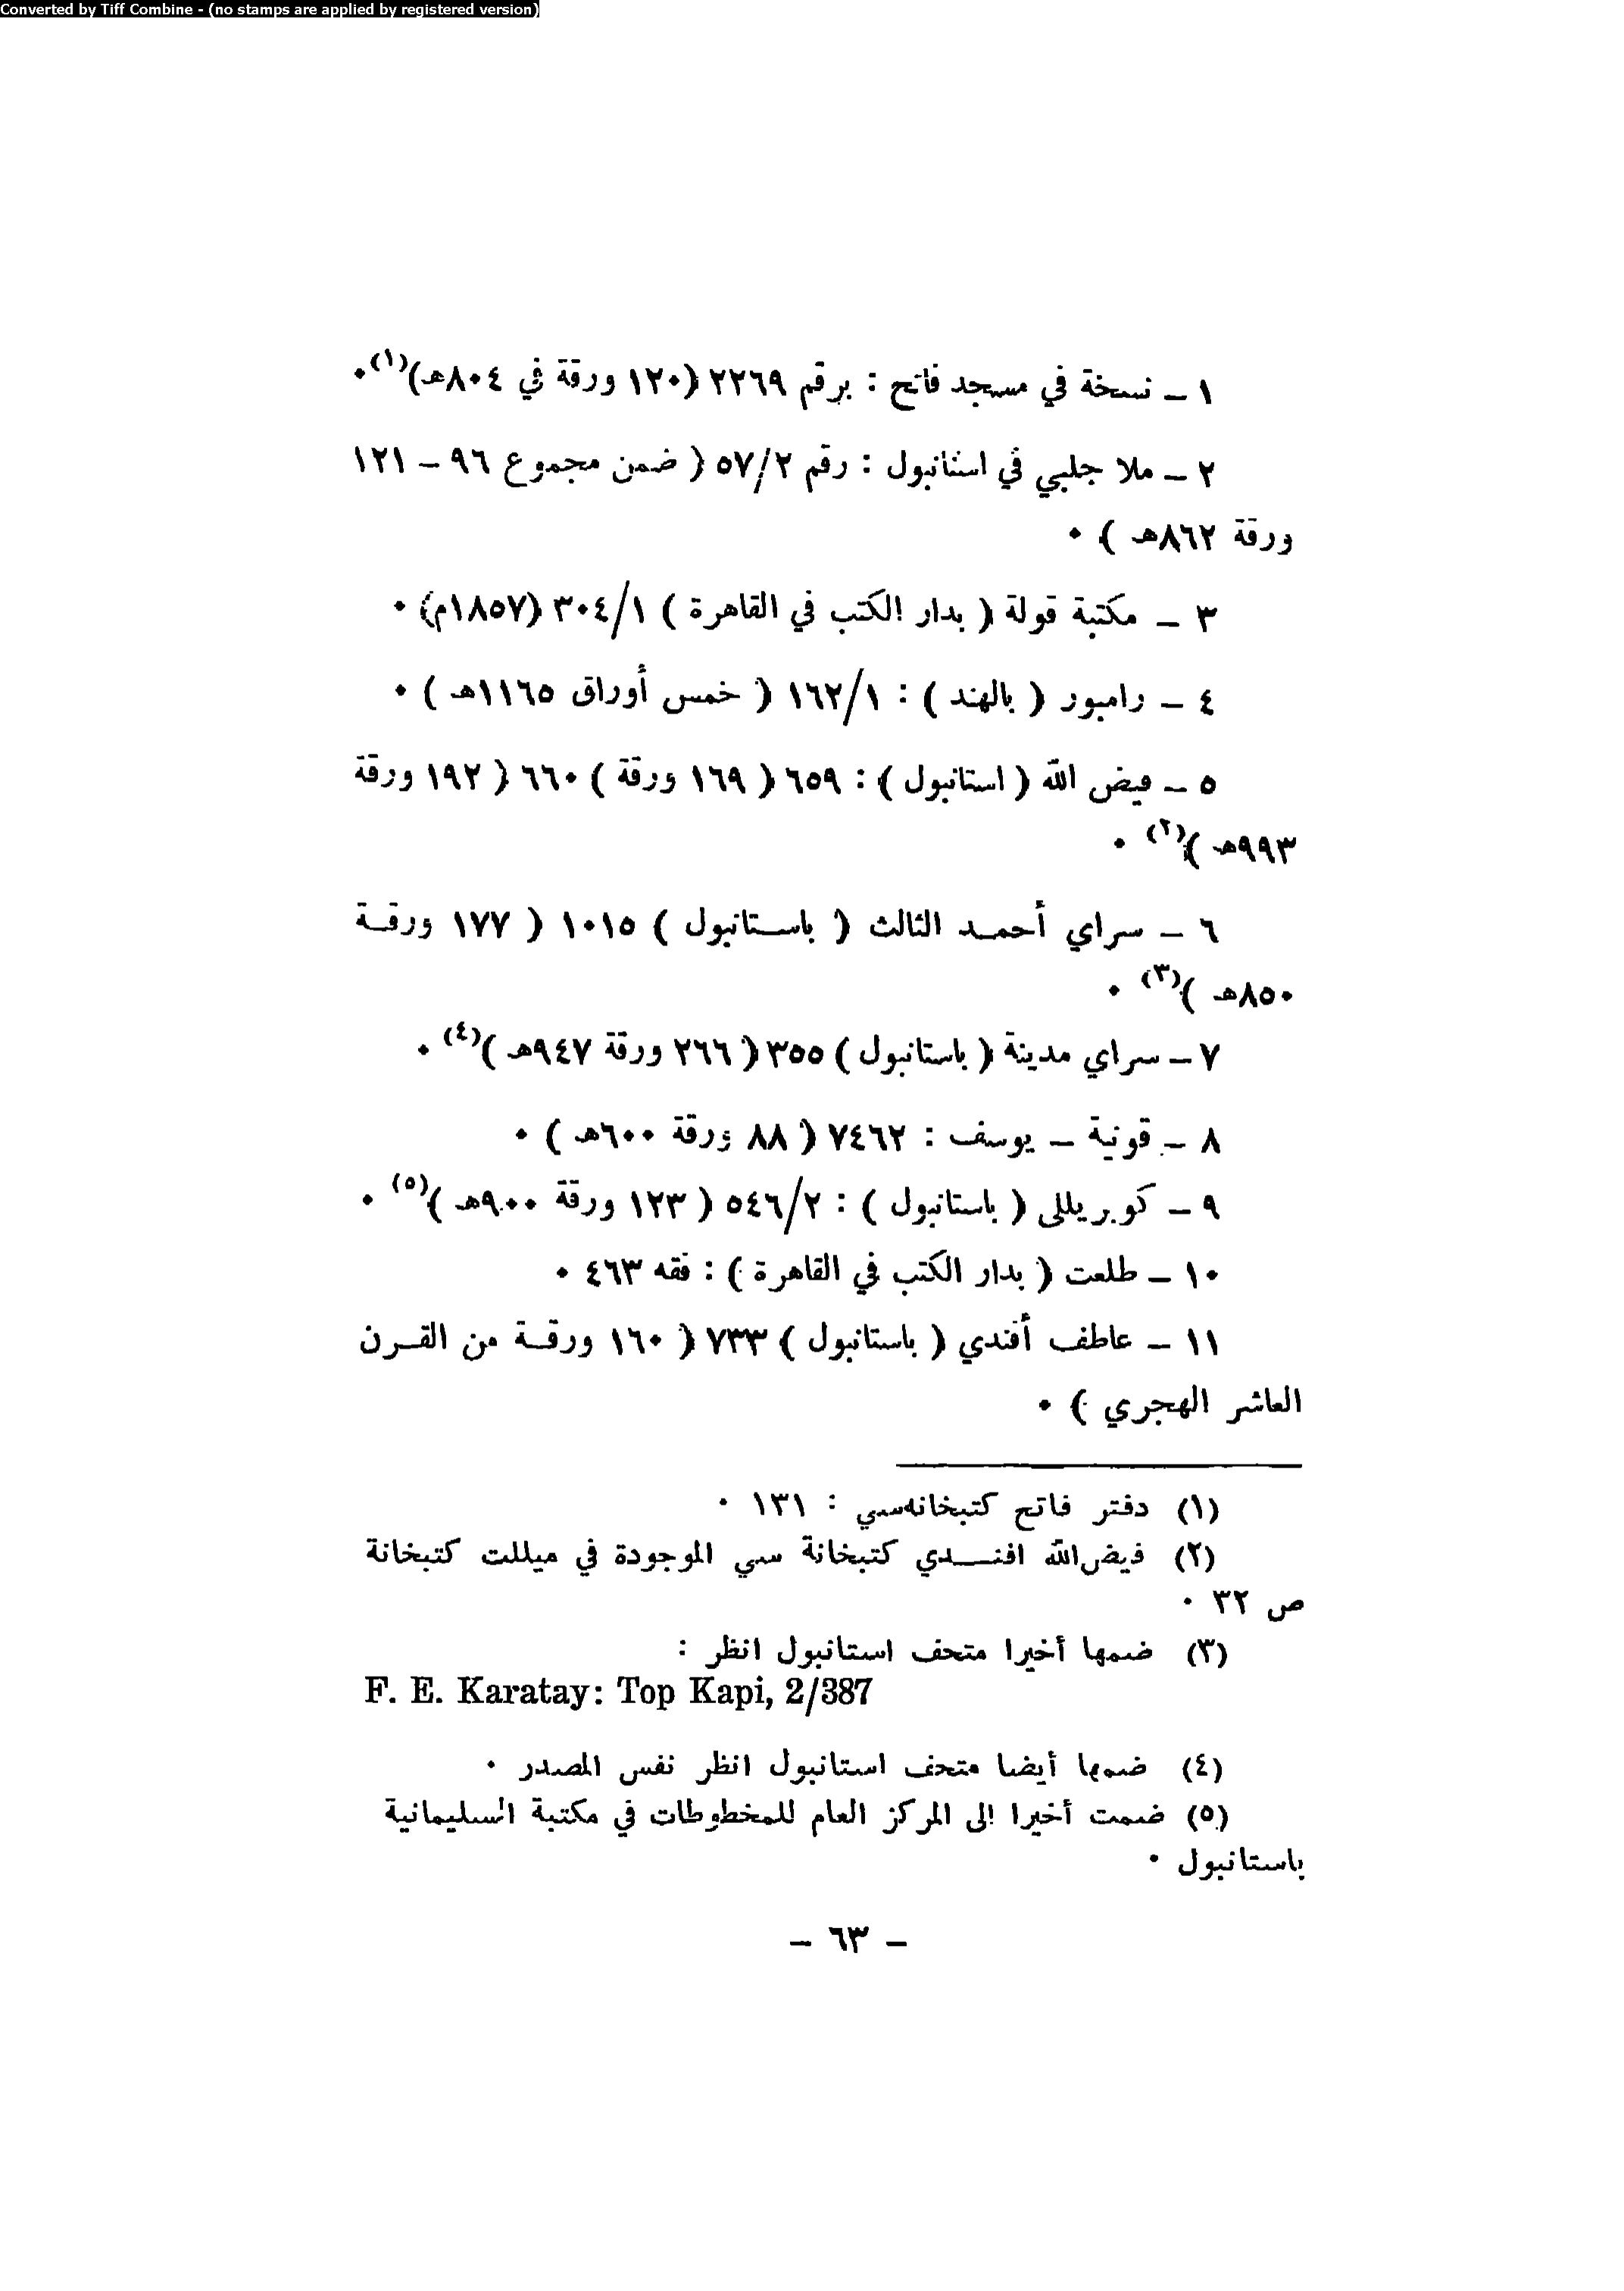 Converted by Tiff Combine - (no stamps are applied by registered version)
١ – نسخة في مسجد فاتح : برقم ٢٢٦٩ (١٢٠ ورقة في ٨٠٤هـ)(١)٠
٢ – ملا جلبي في استانبول : رقم ٥٧/٢ ( ضمن مجموع ٩٦ – ١٢١
ورقة ٨٦٢هـ ) ٠
٣ – مكتبة قولة ( بدار الكتب في القاهرة ) ٣٠٤/١ (١٨٥٧م) ٠
٤ – رامبور ( بالهند ) : ١٦٢/١ ( خمس أوراق ١١٦٥هـ ) ٠
٥ – فيض الله ( استانبول ) : ٦٥٩ ( ١٦٩ ورقة ) ٦٦٠ ( ١٩٢ ورقة
٩٩٣هـ )(٢) ٠
٦ – سراي أحمـد الثالث ( باسـتانبول ) ١٠١٥ ( ١٧٧ ورقـة
٨٥٠هـ )(٣) ٠
٧ – سراي مدينة ( باستانبول ) ٣٥٥ ( ٢٦٦ ورقة ٩٤٧هـ )(٤) ٠
٨ – قونية – يوسف : ٧٤٦٢ ( ٨٨ ورقة ٦٠٠هـ ) ٠
٩ – كوبريللى ( باستانبول ) : ٥٤٦/٢ ( ١٢٣ ورقة ٩٠٠هـ )(٥) ٠
١٠ – طلعت ( بدار الكتب في القاهرة ) : فقه ٤٦٣ ٠
١١ – عاطف أفندي ( باستانبول ) ٧٣٣ ( ١٦٠ ورقـة من القـرن
العاشر الهجري ) ٠
(١) دفتر فاتح كتبخانه‌سي : ١٣١ ٠
(٢) فيض‌الله افنـــدي كتبخانة سي الموجودة في ميللت كتبخانة
ص ٣٢ ٠
(٣) ضمها أخيرا متحف استانبول انظر :
F. E. Karatay: Top Kapi, 2/387
(٤) ضمها أيضا متحف استانبول انظر نفس المصدر ٠
(٥) ضمت أخيرا الى المركز العام للمخطوطات في مكتبة السليمانية
باستانبول ٠
– ٦٣ –